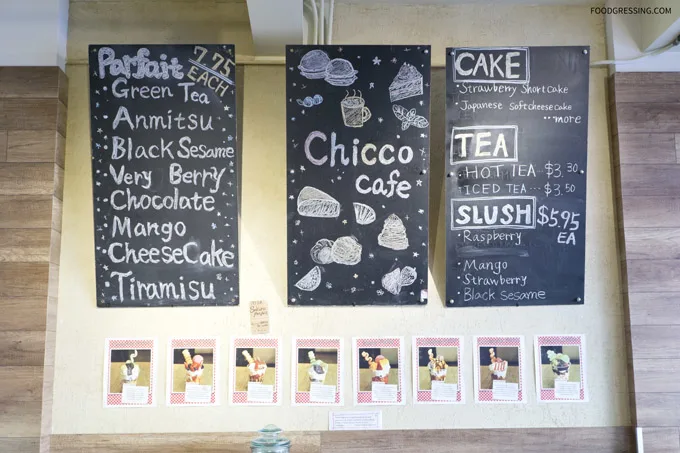 FOODGRESSING.COM
Parfait 7.75
EACH
Green Tea
Anmitsu
Black Sesame
Very Berry
Chocolate
Mango
CheeseCake
Tiramisu
Chicco
cafe
CAKE
Strawberry Shortcake
Japanese Softcheesecake
...more
TEA
HOT TEA --- $3.30
ICED TEA --- $3.50
SLUSH $5.95
EA
Raspberry
Mango
Strawberry
Black Sesame